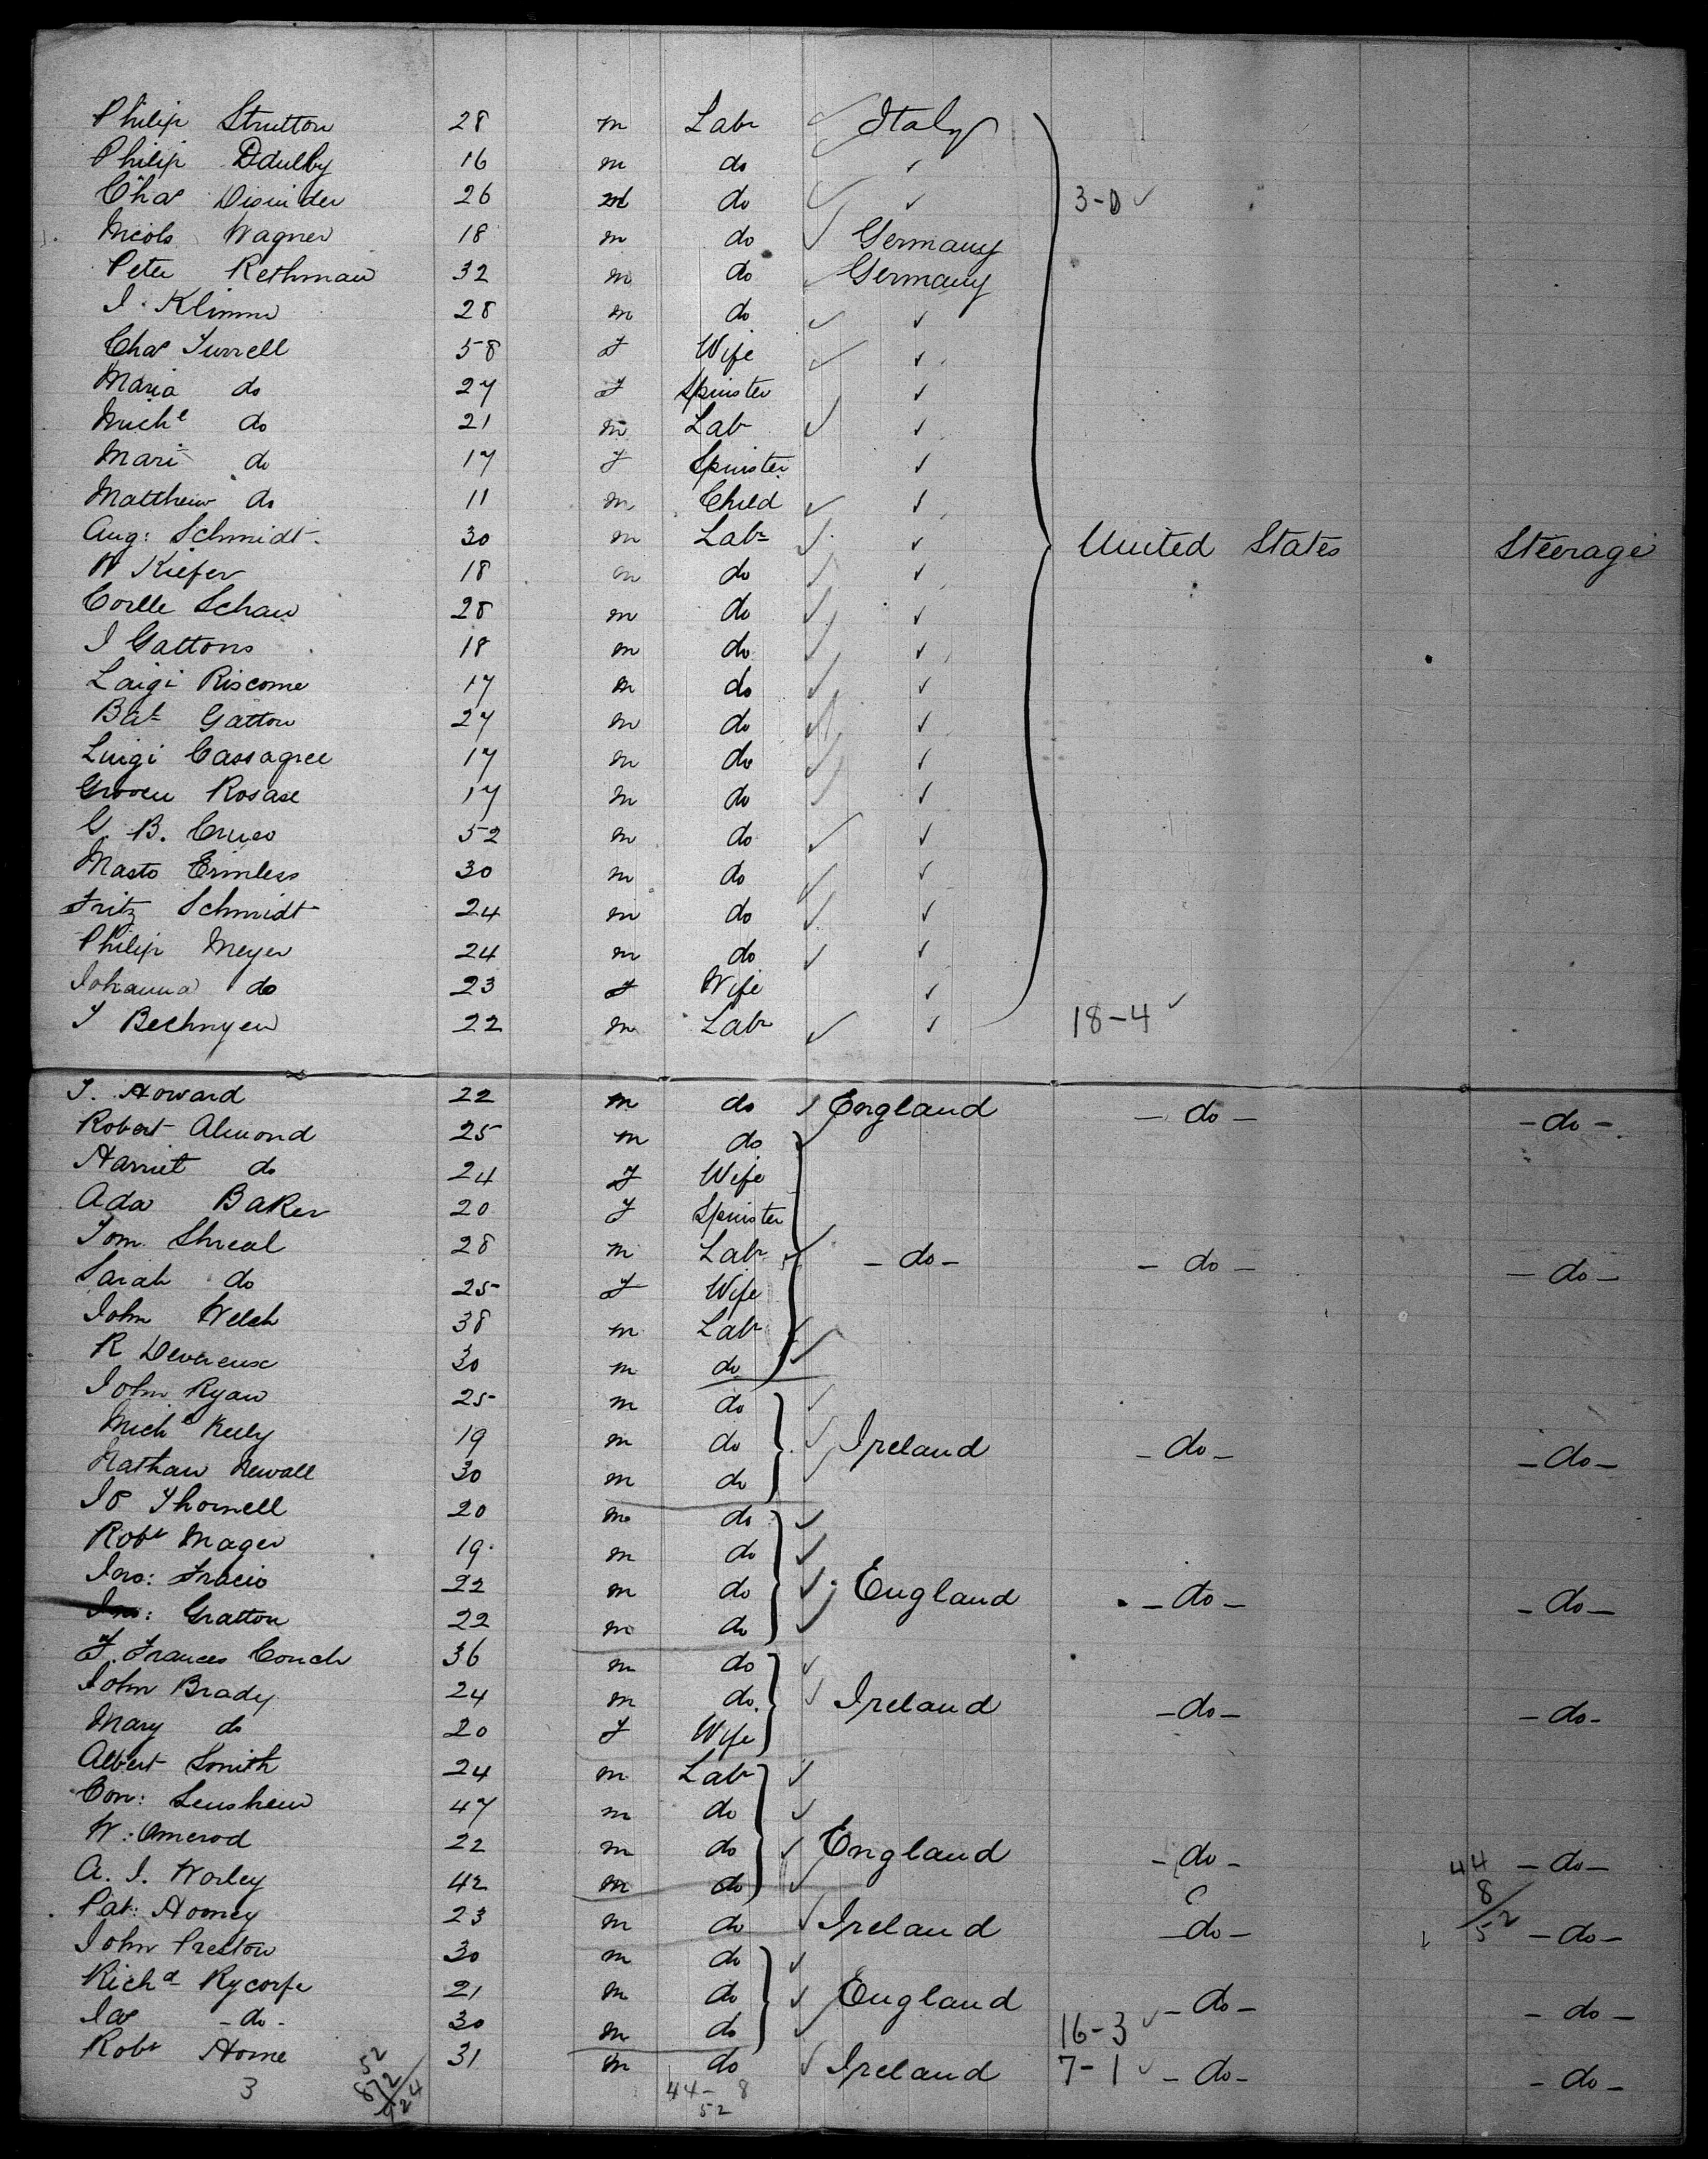 Philip Strutton 28 m Labr Italy
Philip Ddulby 16 m do ✓
Chas Disinder 26 m do ✓ 3-0 ✓
Nicols Wagner 18 m do Germany
Peter Rethman 32 m do Germany
J. Klimm 28 m do ✓
Chas Turrell 58 f Wife ✓
Maria do 27 f Spinster ✓
Michl do 21 m Labr ✓
Mari do 17 f Spinster ✓
Matthew do 11 m Child ✓
Aug: Schmidt 30 m Labr ✓ United States Steerage
W Kiefer 18 m do ✓
Schau 28 m do ✓
J Gattons 18 m do ✓
Laigi Riscome 17 m do ✓
Bat Gatton 27 m do ✓
Luigi Cassagree 17 m do ✓
Rosase 17 m do ✓
G. B. Crueo 52 m do ✓
Masto Ermless 30 m do ✓
Fritz Schmidt 24 m do ✓
Philip Meyer 24 m do ✓
Johanna do 23 f Wife ✓
Bechnyen 22 m Labr ✓ 18-4 ✓
T. Howard 22 m do England - do - - do -
Robert Almond 25 m do
Harriet do 24 f Wife
Ada Baker 20 f Spinster
Tom Shreal 28 m Labr - do - - do - - do -
Sarah do 25 f Wife
John Welch 38 m Labr
R Devereux 30 m do
John Ryan 25 m do
Michl Kelly 19 m do Ireland - do - - do -
Nathan Newall 30 m do
Js Thornell 20 m do
Robt Mager 19 m do
Jno: Fracis 22 m do England - do - - do -
Jno: Gratton 22 m do
F. Frances Couch 36 m do
John Brady 24 m do Ireland - do - - do -
Mary do 20 f Wife
Albert Smith 24 m Labr
Con: Lenshew 47 m do
W: Omerod 22 m do England - do - 44 - do -
A. J. Worley 42 m do 8
Pat: Hooney 23 m do Ireland - do - 52 - do -
John Preston 30 m do
Richd Rycorfe 21 m do England - do - - do -
Jas - do - 30 m do 16-3 ✓
Robt Horne 31 m do Ireland 7-1 ✓ - do - - do -
3 52 44 - 8
52